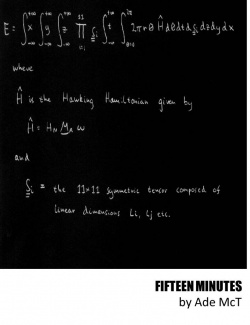 E = ∫₋∞⁺∞ x ∫₋∞⁺∞ y ∫₋∞⁺∞ z ∏ᵢ₌ᵢ¹¹ Sᵢ ∫₋∞⁺∞ t ∫θ=0²π 2πrθ Ĥ dθ dt dSᵢ dz dy dx
where
Ĥ is the Hawking Hamiltonian given by
Ĥ = H_N M_A ω
and
Sᵢ = the 11×11 symmetric tensor composed of
linear dimensions Li, Lj etc.
FIFTEEN MINUTES
by Ade McT